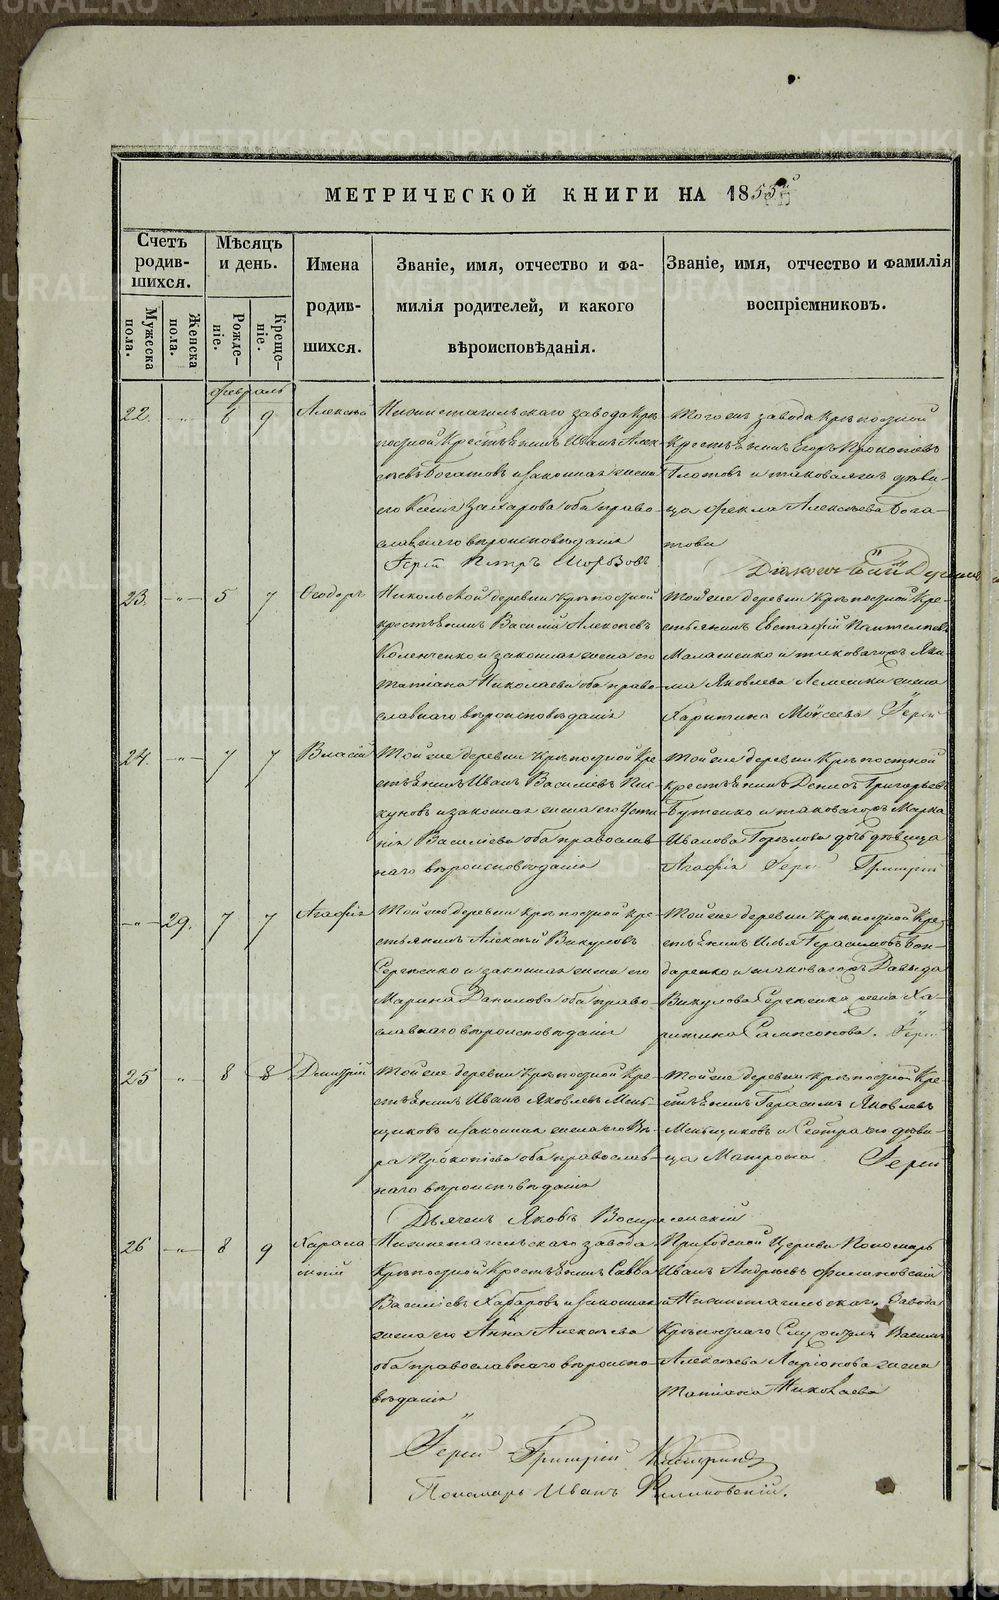 METRIKI.GASO-URAL.RU
МЕТРИЧЕСКОЙ КНИГИ НА 1855
Счетъ родив-шихся.
Мужеска пола.
Женска пола.
Мѣсяцъ и день.
Рожде-ніе.
Креще-ніе.
Имена
родив-
шихся.
Званіе, имя, отчество и фа-
милія родителей, и какого
вѣроисповѣданія.
Званіе, имя, отчество и фамилія
воспріемниковъ.
февраль
22. -"- 6 9
Нижнетагильскаго завода крѣ-
постной крестьянинъ Иванъ Алек-
сѣевъ Богатовъ и законная жена
его Захарова оба право-
славнаго вѣроисповѣданія
Іерей Петръ
Того же завода крѣпостной
крестьянинъ Егоръ Прокопіевъ
и дѣви-
ца Фекла Алексѣева Бога-
това
23. -"- 5 7 Ѳеодоръ
Никольской деревни крѣпостной
крестьянинъ Василій Алексѣевъ
и законная жена его
Татіана Николаева оба право-
славнаго вѣроисповѣданія
Той же деревни крѣпостной кре-
стьянинъ Евстафій
Малашенко и таковагожъ Яки-
ма Яковлева жена
Харитина Моисеева Іерей
24. -"- 7 7 Власій
Той же деревни крѣпостной кре-
стьянинъ Иванъ Василіевъ Пи-
куновъ и законная жена его Усти-
нія Василіева оба православ-
наго вѣроисповѣданія
Той же деревни крѣпостной
крестьянинъ Денисъ Григорьевъ
Бутенко и таковагожъ Марка
Иванова дочь дѣвица
Агафія Іерей Григорій
-"- 29. 7 7 Агафія
Той же деревни крѣпостной кре-
стьянинъ Алексѣй Викуловъ
Сергѣенко и законная жена его
Марина Данилова оба право-
славнаго вѣроисповѣданія
Той же деревни крѣпостной кре-
стьянинъ Илья Герасимовъ Бон-
даренко и таковагожъ Давыда
Викулова Сергѣенка жена Ха-
ритина Самсонова. Іерей
25 -"- 8 8 Дмитрій
Той же деревни крѣпостной кре-
стьянинъ Иванъ Яковлевъ Мень-
щиковъ и законная жена его Вѣ-
ра Прокопіева оба православ-
наго вѣроисповѣданія
Той же деревни крѣпостной кре-
стьянинъ Герасимъ Яковлевъ
Меньщиковъ и сестра его дѣви-
ца Матрона Іерей
Дьячекъ Яковъ
26 -"- 8 9 Харала
мпій
Нижнетагильскаго завода
крѣпостной крестьянинъ Савва
Василіевъ Хабаровъ и законная
жена его Анна Алексѣева
оба православнаго вѣроиспо-
вѣданія
Приходской церкви Пономарь
Иванъ Андреевъ
и Нижнетагильскаго завода
крѣпостнаго Василія
Алексѣева Ларіонова жена
Татіана Николаева
Іерей Григорій
Пономарь Иванъ